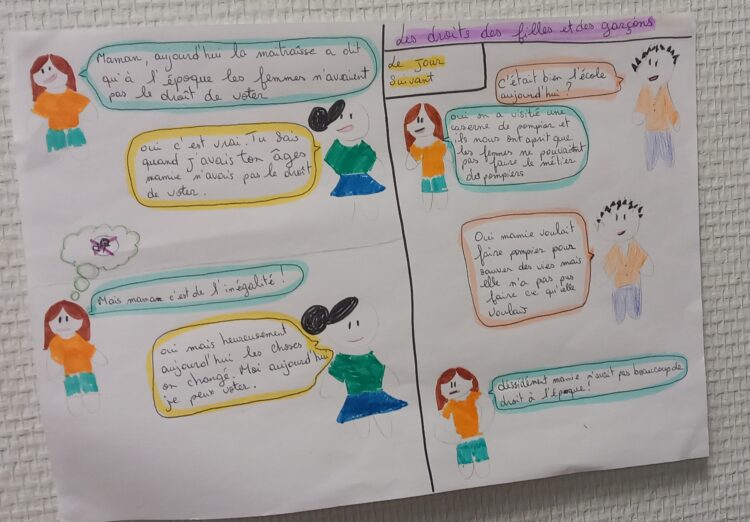 Les droits des filles et des garçons
Maman, aujourd'hui la maitraîsse a dit
qu'à l'époque les femmes n'avaient
pas le droit de voter
oui c'est vrai. Tu sais
quand j'avais ton âges
mamie n'avais pas le droit
de voter.
Mais maman c'est de l'inégalité !
oui mais heureusement
aujourd'hui les choses
on changé. Moi aujourd'hui
je peux voter.
Le jour
suivant
C'était bien l'école
aujourd'hui ?
oui on a visité une
caserne de pompier et
ils nous ont aprit que
les femmes ne pouvaient
pas faire le métier
de pompiers
Oui mamie voulait
faire pompier pour
sauver des vies mais
elle n'a pas pus
faire ce qu'elle
voulait
dessidément mamie n'avait pas beaucoup de
droit à l'époque !